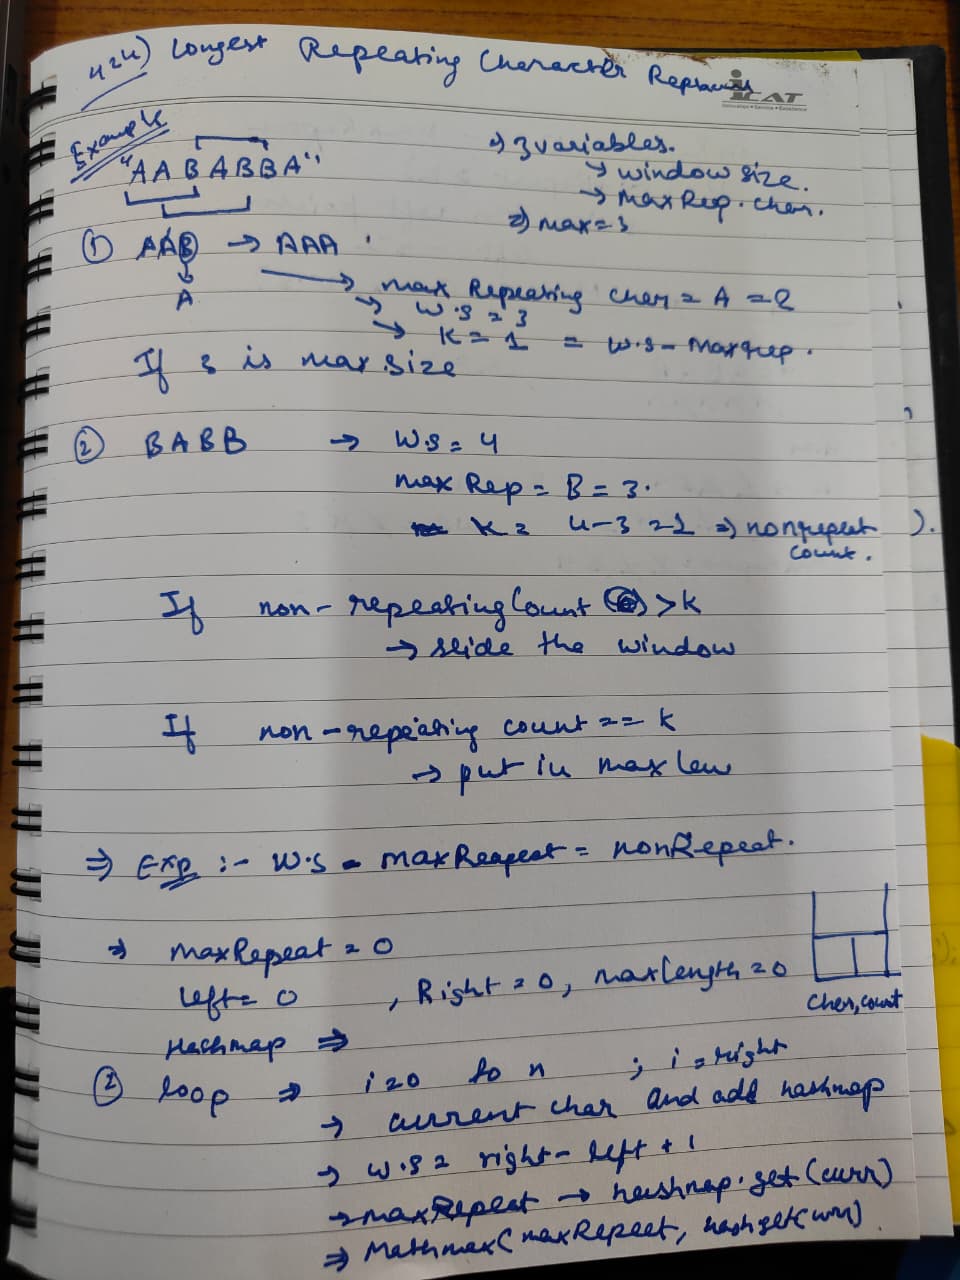 424) Longest Repeating Character
iCAT
Example
"AABABBA"
=> 3 variables.
-> window size.
-> max Rep. char.
=> max = 3
① AAB -> AAA
A
-> max Repeating char = A = 2
-> W.S = 3
-> K = 1 = W.S - Max rep.
If 3 is max size
② BABB -> W.S = 4
max Rep = B = 3.
K = 4-3 = 1 => nonrepeat
count.
If non-repeating Count > K
-> slide the window
If non-repeating count == K
-> put in max len
=> Exp :- W.S - maxReapeat = nonRepeat.
=> maxRepeat = 0
left = 0 , Right = 0, maxlength = 0
Char, count
Hashmap =>
② loop => i=0 to n ; i = right
-> current char and add hashmap
-> W.S = right - left + 1
-> maxRepeat -> hashmap.get(curr)
=> Mathmax(maxRepeat, hashget(curr)